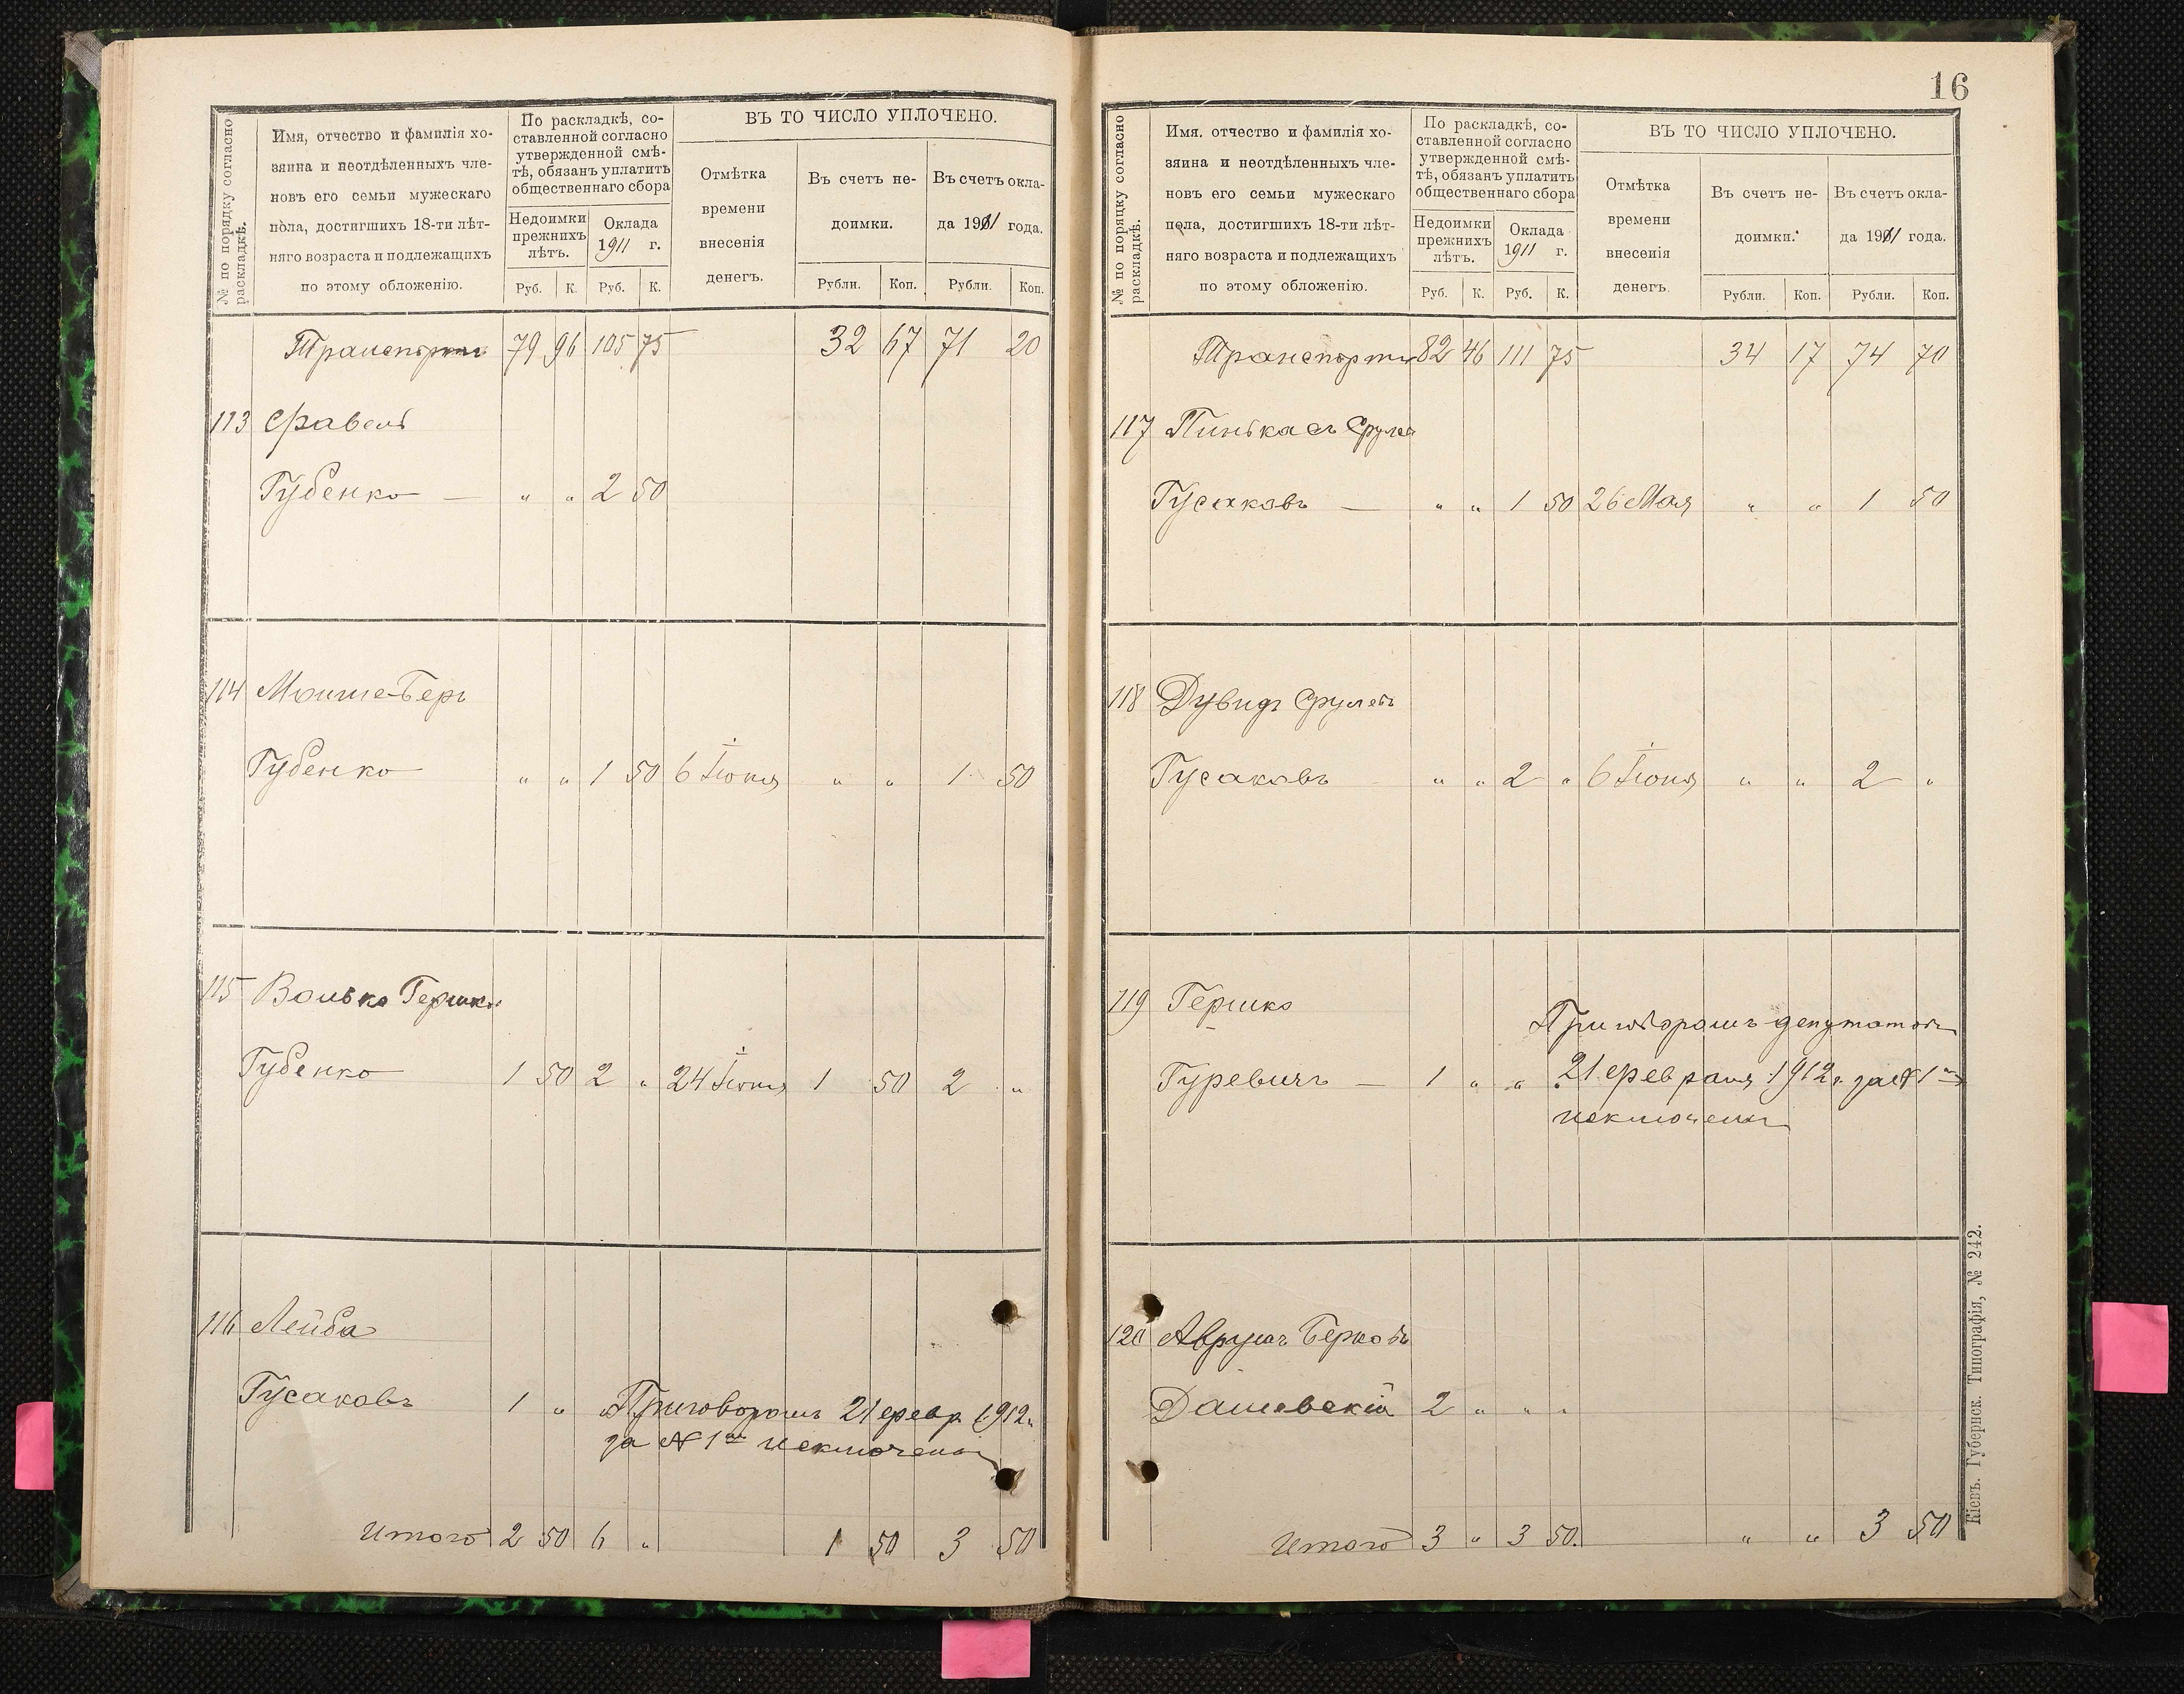 № по порядку согласно раскладкѣ.
Имя, отчество и фамилія хо-
зяина и неотдѣленныхъ чле-
новъ его семьи мужескаго
пола, достигшихъ 18-ти лѣт-
няго возраста и подлежащихъ
по этому обложенію.
По раскладкѣ, со-
ставленной согласно
утвержденной смѣ-
тѣ, обязанъ уплатить
общественнаго сбора
Недоимки
прежнихъ
лѣтъ.
Оклада
1911 г.
ВЪ ТО ЧИСЛО УПЛОЧЕНО.
Отмѣтка
времени
внесенія
денегъ.
Въ счетъ не-
доимки.
Въ счетъ окла-
да 1911 года.
Руб. К. Руб. К. Рубли. Коп. Рубли. Коп.
Транспортъ 79 96 105 75 32 67 71 20
113 Файвель
Губенко — " " 2 50
114 Мошие-Беръ
Губенко " " 1 50 6 Іюня " " 1 50
115 Волько Гершк.
Губенко 1 50 2 " 24 Іюня 1 50 2 "
116 Лейба
Гусаковъ 1 " " Приговоромъ 21 февр. 1912 г.
за № 1 исключенъ
Итого 2 50 6 " 1 50 3 50
16
№ по порядку согласно раскладкѣ.
Имя, отчество и фамилія хо-
зяина и неотдѣленныхъ чле-
новъ его семьи мужескаго
пола, достигшихъ 18-ти лѣт-
няго возраста и подлежащихъ
по этому обложенію.
По раскладкѣ, со-
ставленной согласно
утвержденной смѣ-
тѣ, обязанъ уплатить
общественнаго сбора
Недоимки
прежнихъ
лѣтъ.
Оклада
1911 г.
ВЪ ТО ЧИСЛО УПЛОЧЕНО.
Отмѣтка
времени
внесенія
денегъ.
Въ счетъ не-
доимки.
Въ счетъ окла-
да 1911 года.
Руб. К. Руб. К. Рубли. Коп. Рубли. Коп.
Транспортъ 82 46 111 75 34 17 74 70
117 Пинькасъ Срулев
Гусаковъ — " " 1 50 26 Мая " " 1 50
118 Дувидъ Срулевъ
Гусаковъ " " 2 " 6 Іюня " " 2 "
119 Гершко
Приговоромъ депутатовъ
Гуревичъ — 1 " " " 21 февраля 1912 г. за № 1
исключенъ
120 Аврумъ Берковъ
Дашевскій 2 " " "
Итого 3 " 3 50. " " 3 50
Кіевъ. Губернск. Типографія, № 242.